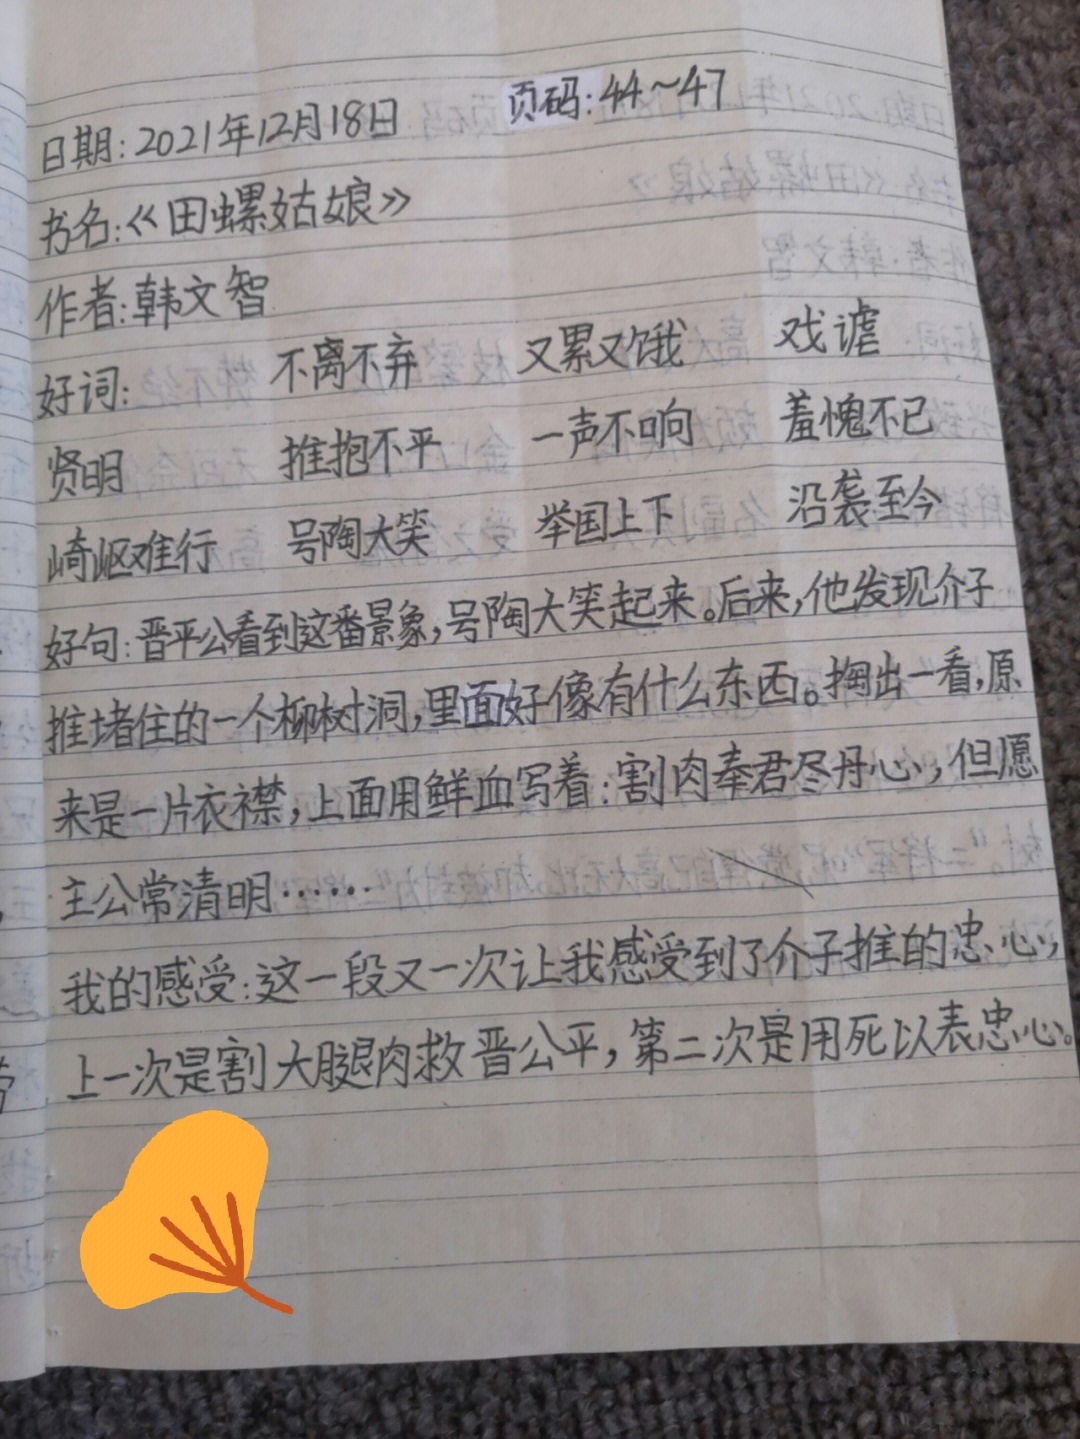 日期:2021年12月18日 页码:44~47
书名:《田螺姑娘》
作者:韩文智
好词: 不离不弃 又累又饿 戏谑
贤明 推抱不平 一声不响 羞愧不已
崎岖难行 号陶大笑 举国上下 沿袭至今
好句:晋平公看到这番景象,号陶大笑起来。后来,他发现介子
推堵住的一个柳树洞,里面好像有什么东西。掏出一看,原
来是一片衣襟,上面用鲜血写着:割肉奉君尽丹心,但愿
主公常清明……
我的感受:这一段又一次让我感受到了介子推的忠心,
上一次是割大腿肉救晋公平,第二次是用死以表忠心。